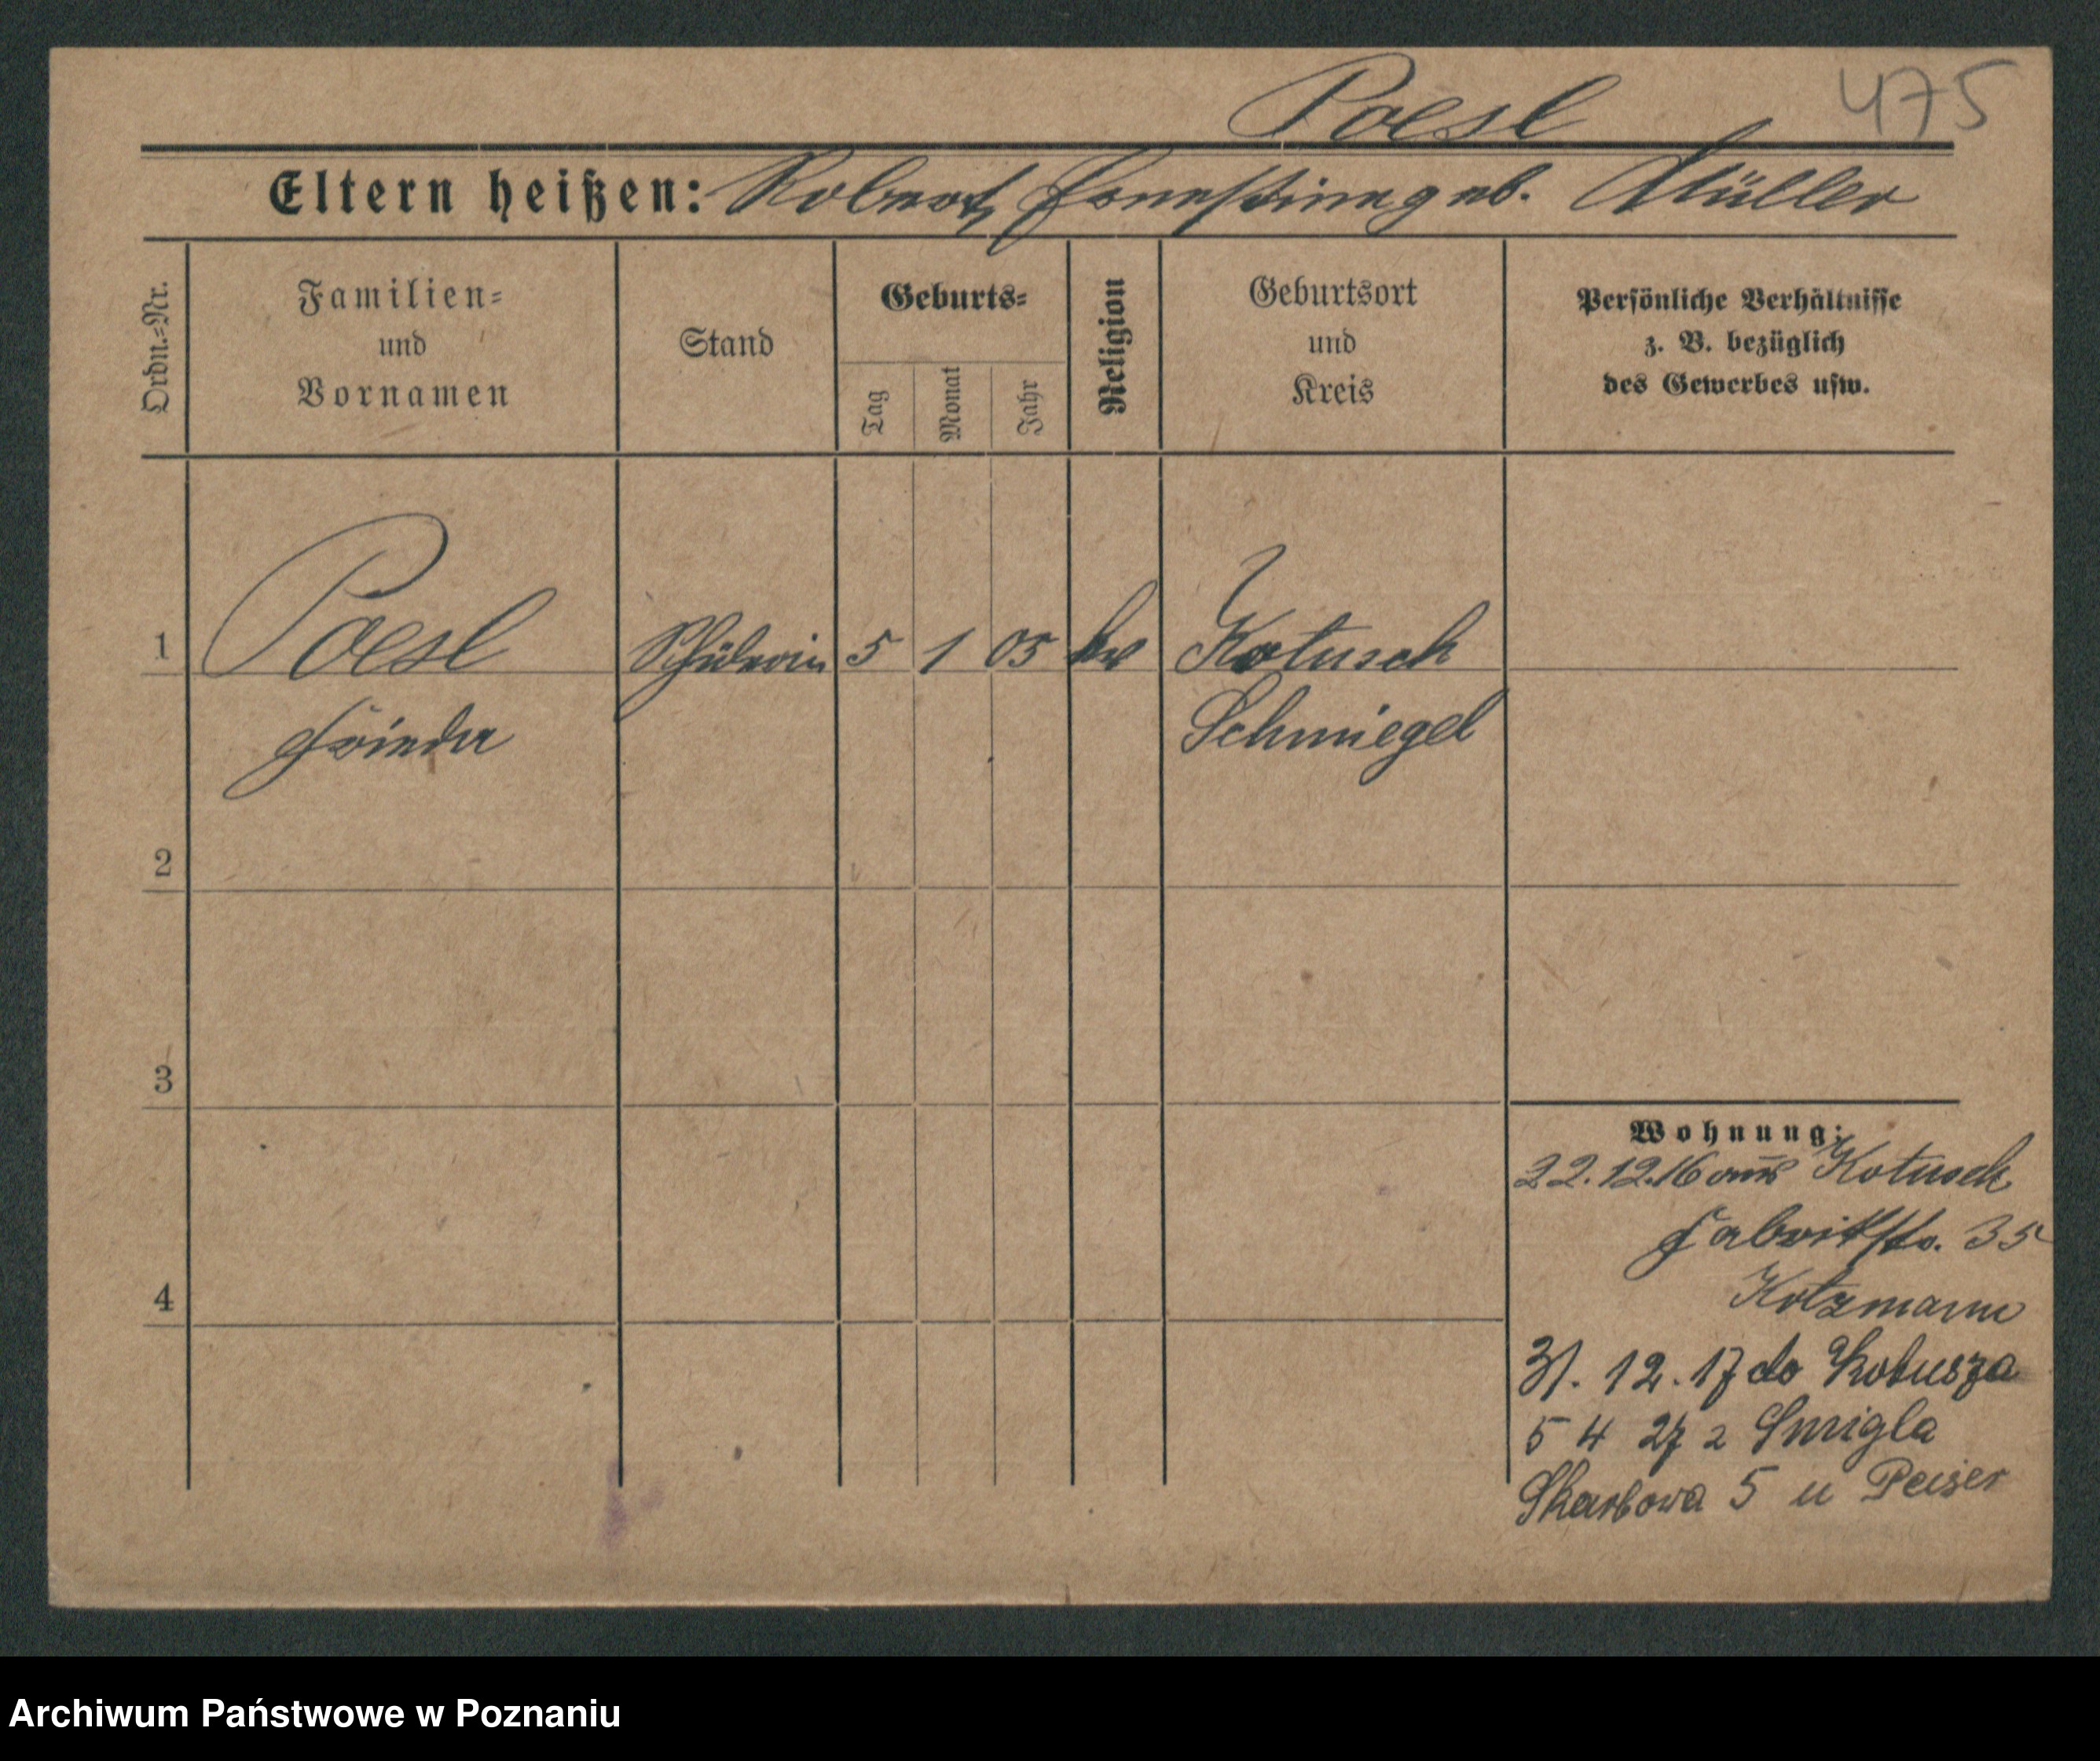 Poesl 475
Eltern heißen: Robert, Ernestine geb. Müller
Ordn.-Nr.
Familien-
und
Vornamen
Stand
Geburts-
Tag
Monat
Jahr
Religion
Geburtsort
und
Kreis
Persönliche Verhältnisse
z. B. bezüglich
des Gewerbes usw.
1 Poesl Schülerin 5 1 05 Kotusch
Frieda Schmiegel
2
3
4
Wohnung:
22.12.16 aus Kotusch
Fabrikstr. 35
Kotzmann
31. 12. 17 do Kotusza
5 4 27 z Smigla
Skarbowa 5 u Peiser
Archiwum Państwowe w Poznaniu